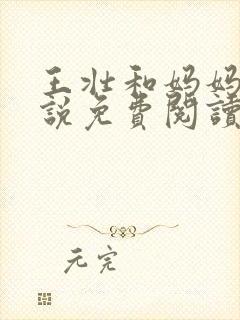 王壮和妈妈
說免費閱讀
元完